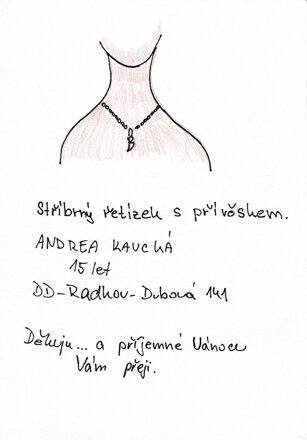 Stříbrný řetízek s přívěskem.
ANDREA KAUCKÁ
15 let
DD-Radkov-Dubová 141
Děkuju... a příjemné Vánoce
Vám přeji.